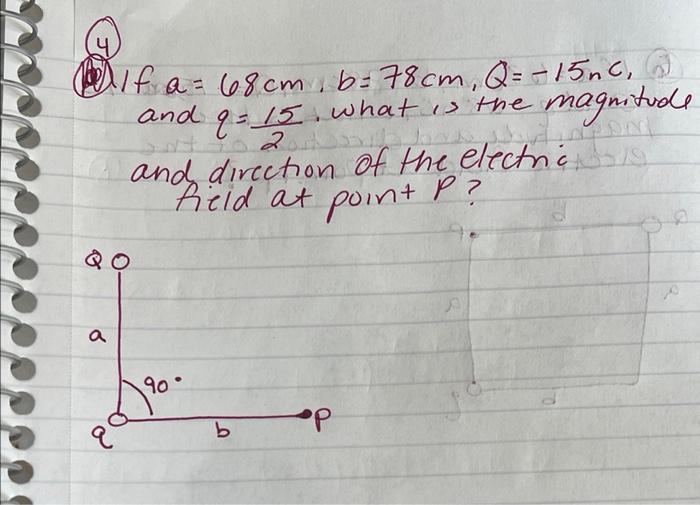 4
If a = 68cm, b = 78cm, Q = -15nC,
and q = 15/2. what is the magnitude
and direction of the electric
field at point P?
Q
a
90°
q
b
P